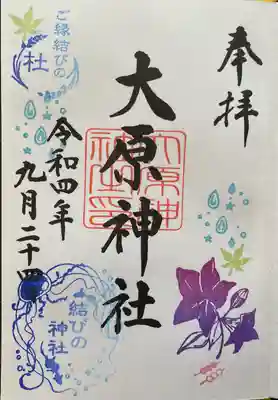 奉拝
大原神社
令和四年
九月二十四
ご縁結びの
社
結びの
神社